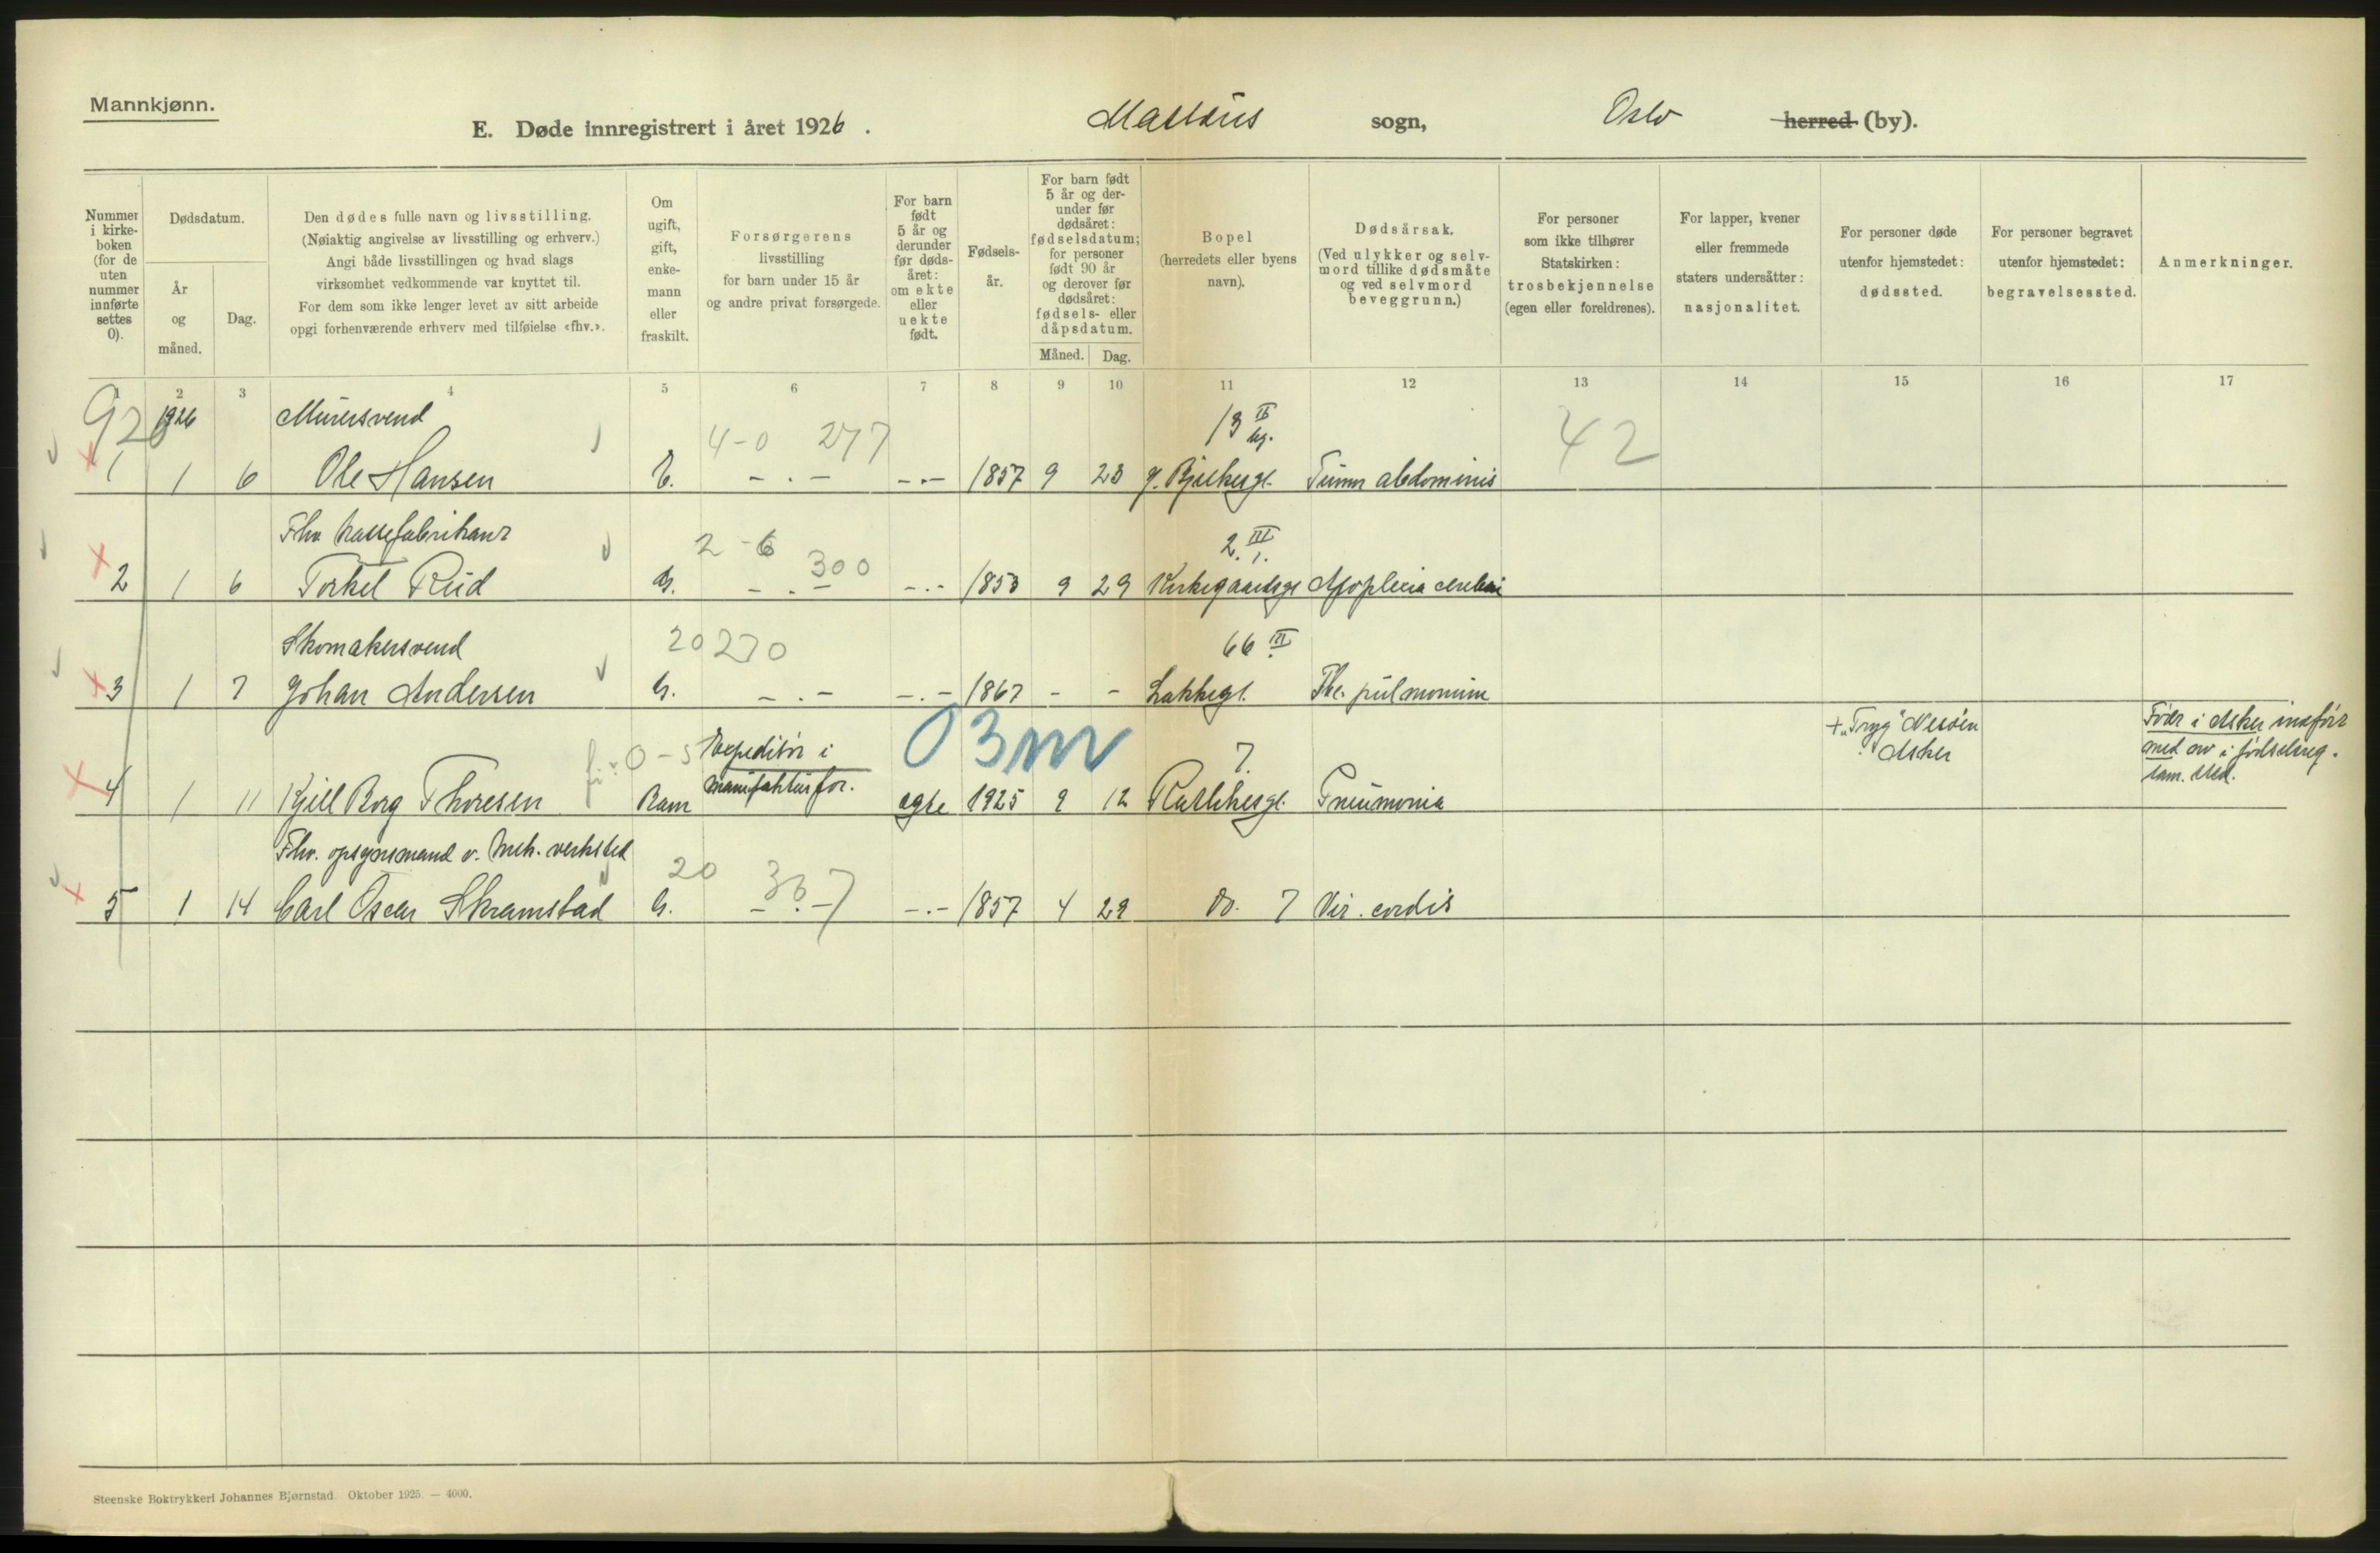 Mannkjønn.
E. Døde innregistrert i året 1926. Mattæus sogn, Oslo herred (by).
Nummer i kirke-boken (for de uten nummer innførte settes 0).
Dødsdatum.
År og måned.
Dag.
Den dødes fulle navn og livsstilling.
(Nøiaktig angivelse av livsstilling og erhverv.)
Angi både livsstillingen og hvad slags
virksomhet vedkommende var knyttet til.
For dem som ikke lenger levet av sitt arbeide
opgi forhenværende erhverv med tilføielse «fhv.».
Om ugift, gift, enke-mann eller fraskilt.
Forsørgerens
livsstilling
for barn under 15 år
og andre privat forsørgede.
For barn født 5 år og derunder før døds-året: om ekte eller uekte født.
Fødsels-år.
For barn født 5 år og der-under før dødsåret: fødselsdatum; for personer født 90 år og derover før dødsåret: fødsels- eller dåpsdatum.
Måned. Dag.
Bopel
(herredets eller byens
navn).
Dødsårsak.
(Ved ulykker og selv-
mord tillike dødsmåte
og ved selvmord
beveggrunn.)
For personer
som ikke tilhører
Statskirken:
trosbekjennelse
(egen eller foreldrenes).
For lapper, kvener
eller fremmede
staters undersåtter:
nasjonalitet.
For personer døde
utenfor hjemstedet:
dødssted.
For personer begravet
utenfor hjemstedet:
begravelsessted.
Anmerkninger.
1 2 3 4 5 6 7 8 9 10 11 12 13 14 15 16 17
1926 Murersvend 4-0 277 13 IV 42
1 1 6 Ole Hansen E. - . - - . - 1857 9 23 Tumor abdominis
Fhv. 2-6 300 2. III
2 1 6 Torkel Rud G. - . - - . - 1853 9 29 Kirkegaardsgt Apoplexia cerebri
Skomakersvend 20 270 66 III
3 1 7 Johan Andersen G. - . - - . - 1867 - - Lakkegt. Tbc. pulmonum
0-5 Expeditør i 03m 7. + "Tryg" Nesøen Født i Asker indført
manufakturfor. Asker med av i fødselsreg.
4 1 11 Kjell Borg Thoresen Barn egte 1925 9 12 Pneumonia sam. sted.
Fhv. opsynsmand v. mek. verksted 20 367
5 1 14 Carl Oscar Skramstad G. - . - - . - 1857 4 29 do. 7 Vit. cordis
Steenske Boktrykkeri Johannes Bjørnstad. Oktober 1925. — 4000.